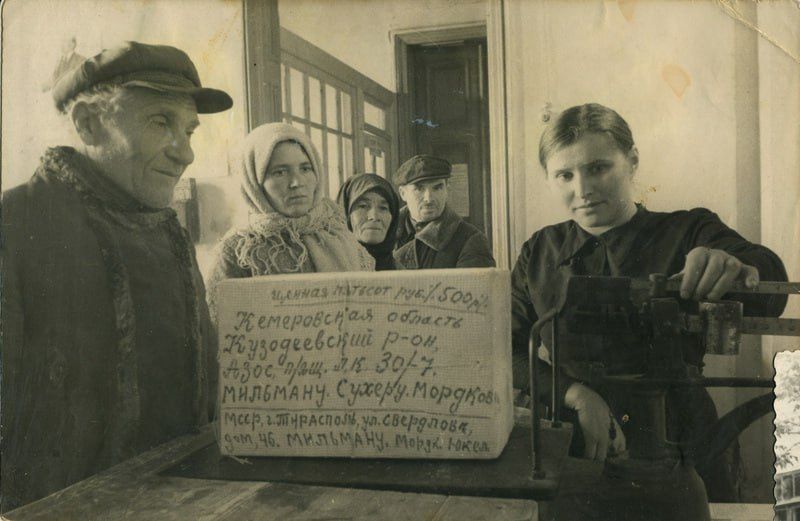 Ценная пятьсот руб. 500р.
Кемеровская область
Кузодеевский р-он,
Азос, п/ящ. Л.К 30/-7,
Мильману. Сухеру. Мордков
Мсср, г. Тирасполь, ул. Свердлова,
дом, 46. Мильману. Мордк. Юкел